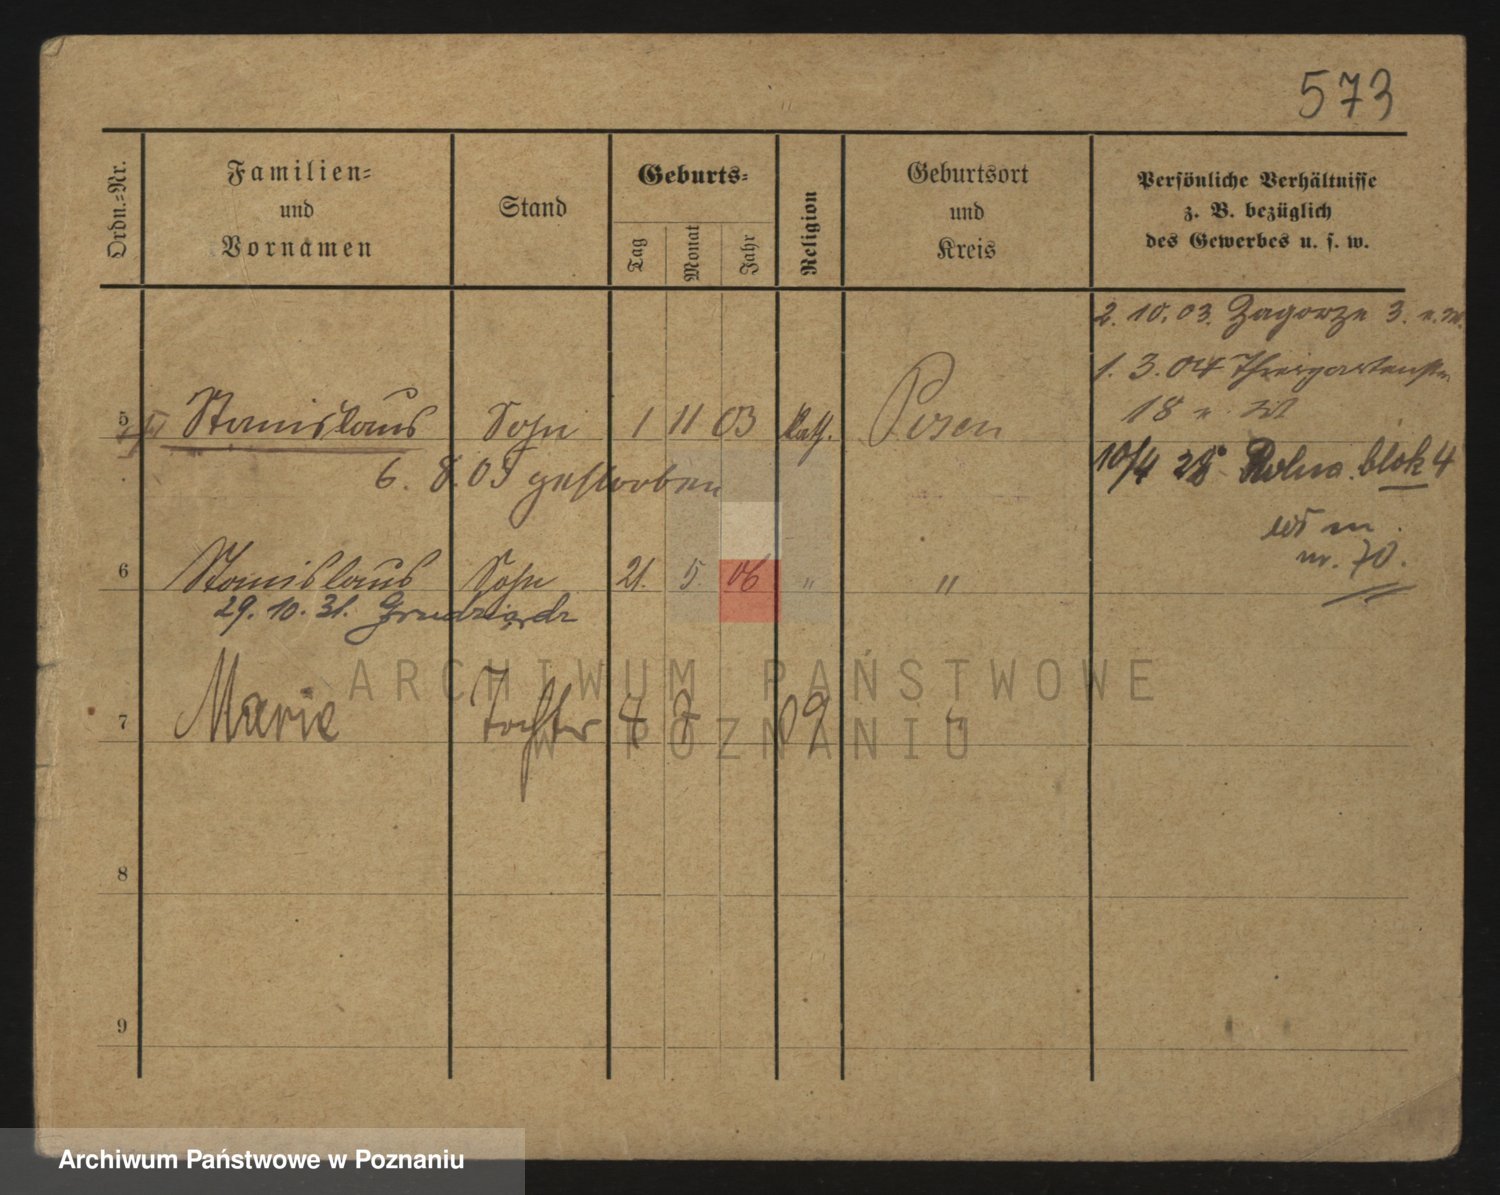 573
Ordn.=Nr.
Familien=
und
Vornamen
Stand
Geburts=
Tag
Monat
Jahr
Religion
Geburtsort
und
Kreis
Persönliche Verhältnisse
z. B. bezüglich
des Gewerbes u. s. w.
2. 10. 03. Zagorze 3.
1. 3. 04 Thiergartenstr.
18
5 Stanislaus Sohn 1 11 03 kath. Posen
6. 8. 05 gestorben
10/4 28 Rolna. blok 4
m.
nr. 70.
6 Stanislaus Sohn 21. 5. 06 " "
29. 10. 31. Grudziądz
7 Marie Tochter 4 09 "
8
9
ARCHIWUM PAŃSTWOWE
W POZNANIU
Archiwum Państwowe w Poznaniu